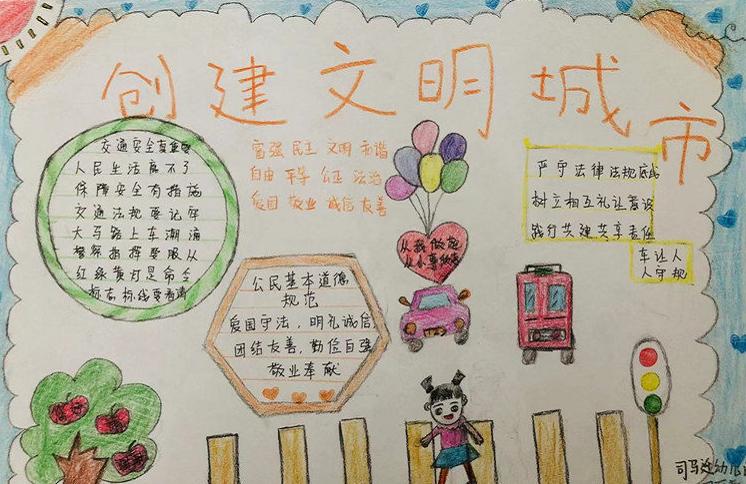 创建文明城市
交通安全真重要
人民生活离不了
保障安全有措施
交通法规要记牢
大马路上车潮涌
警察指挥要服从
红绿黄灯是命令
标志标线要看清
富强 民主 文明 和谐
自由 平等 公正 法治
爱国 敬业 诚信 友善
从我做起
从小事做起
公民基本道德
规范
爱国守法，明礼诚信
团结友善，勤俭自强
敬业奉献
严守法律法规底线
树立相互礼让意识
践行共建共享责任
车让人
人守规
司马迁幼儿园